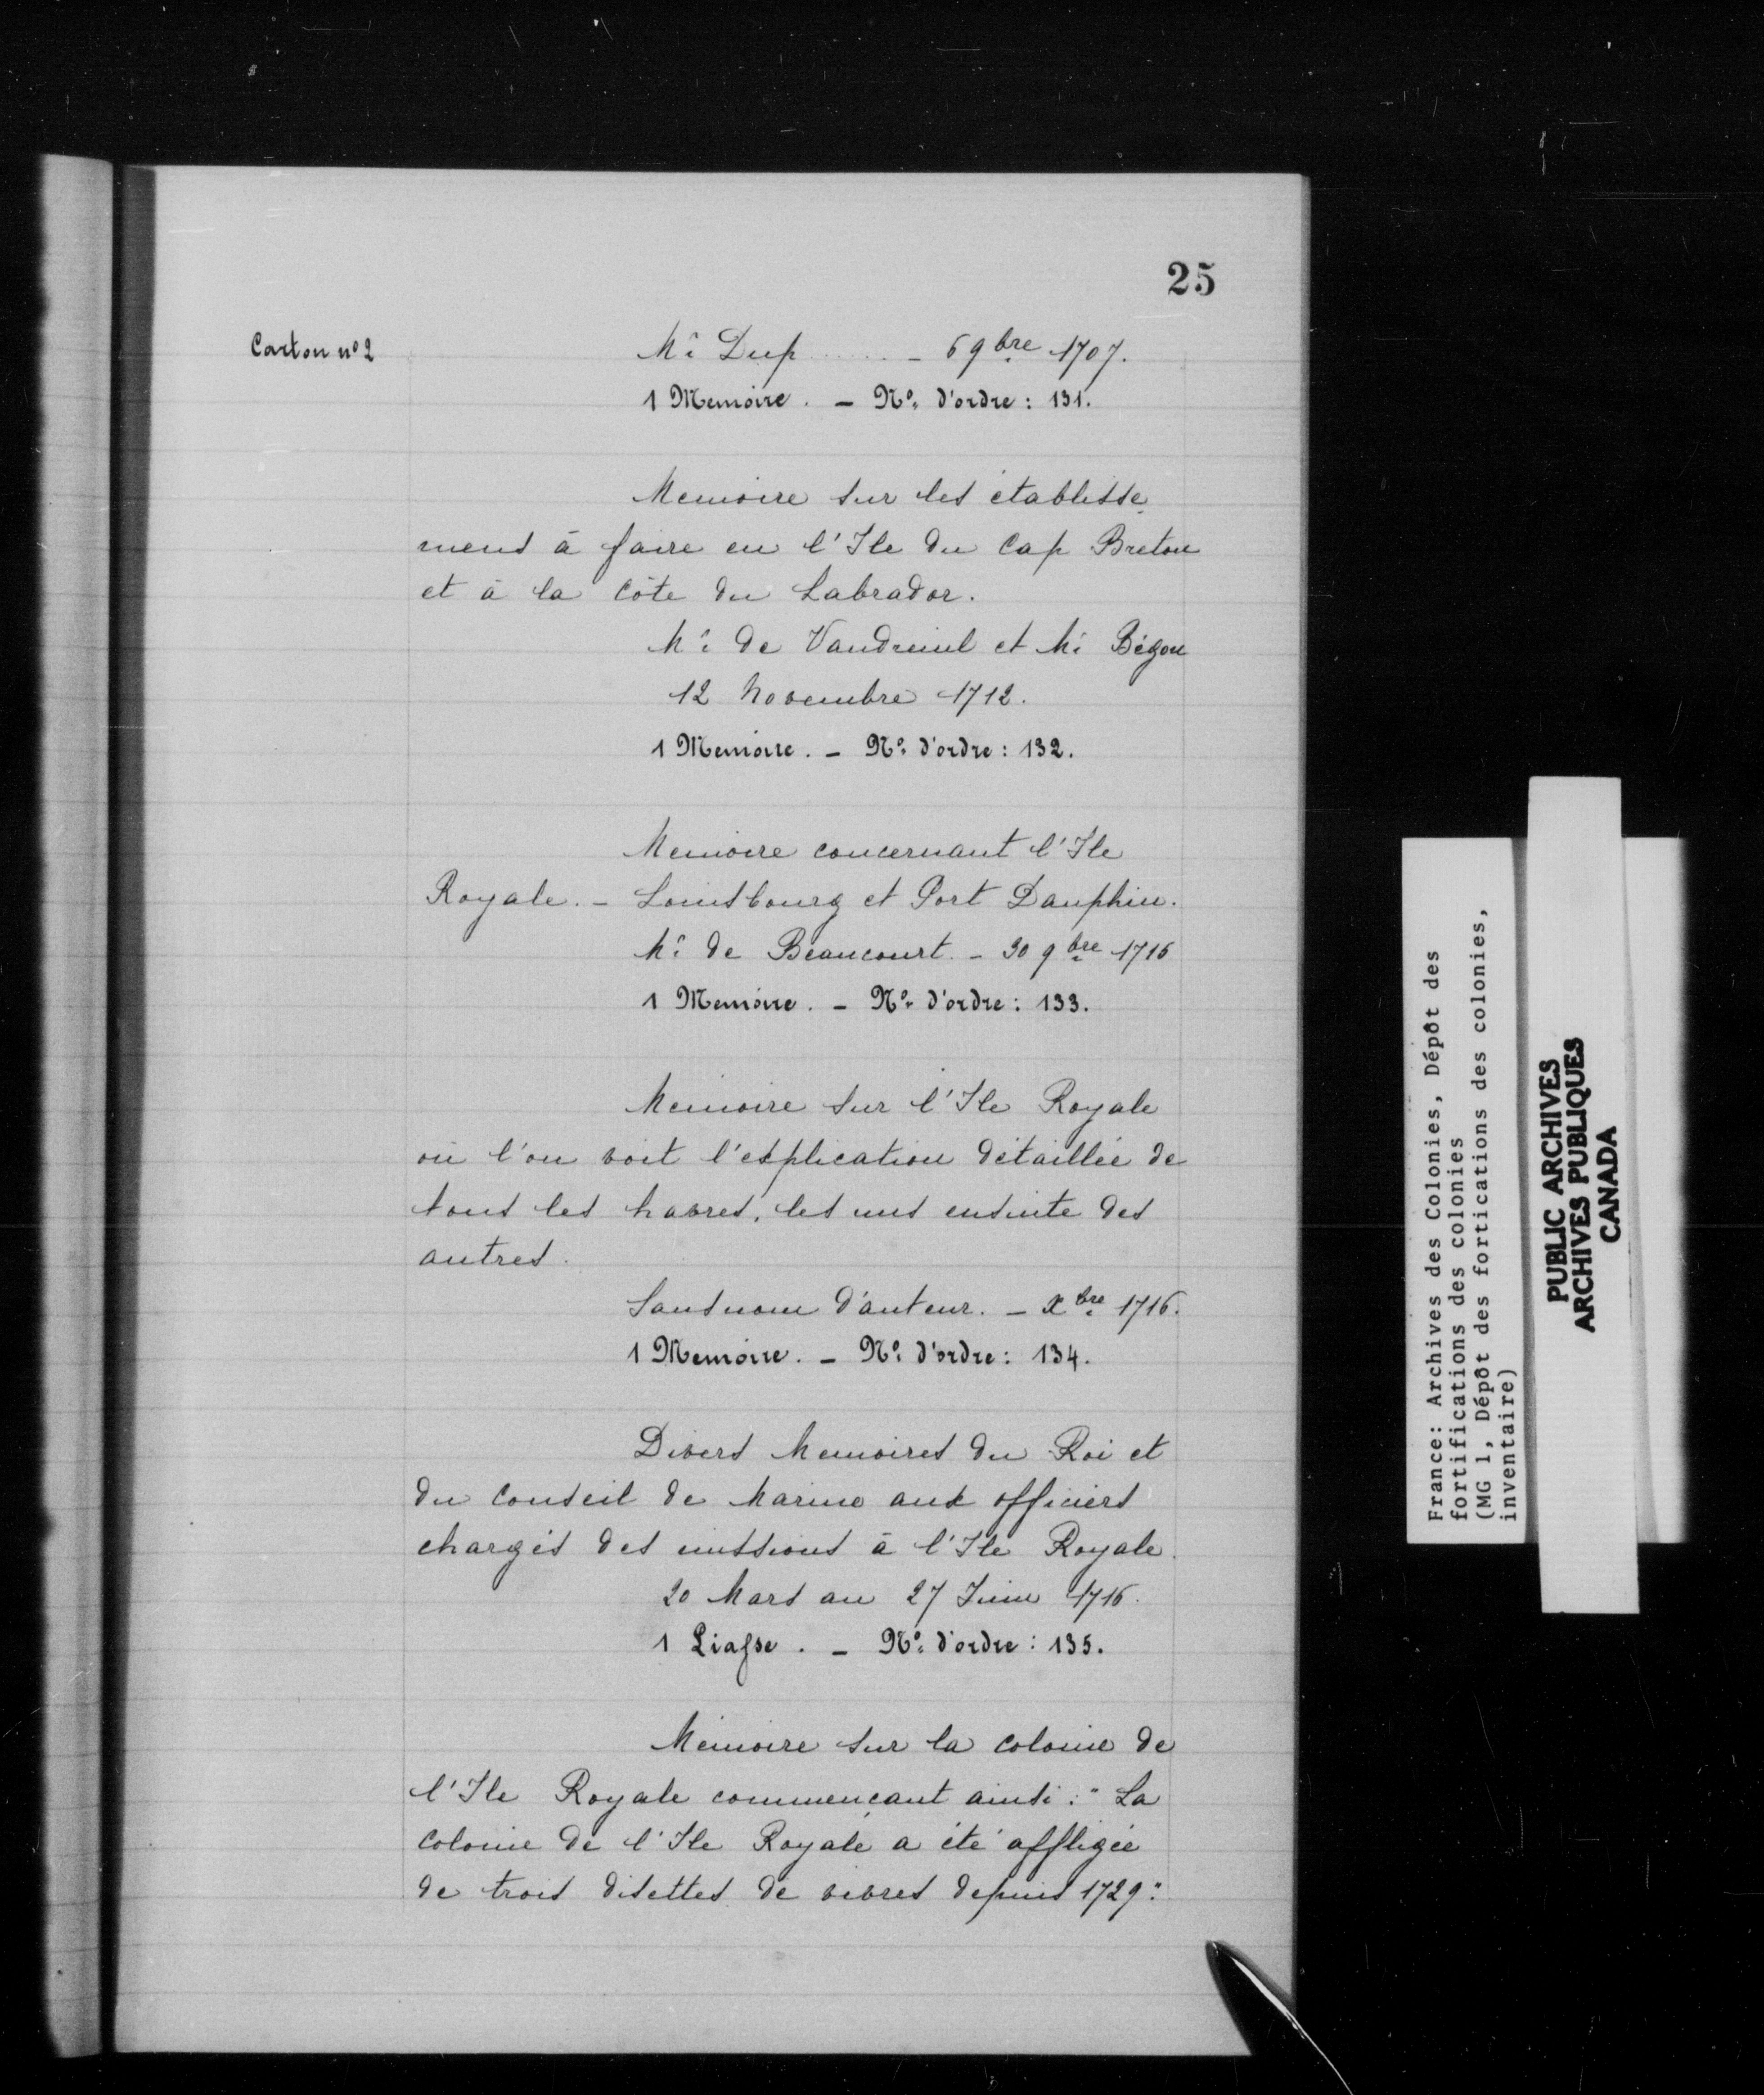 25
Carton nº 2
Mr. Dup ........ – 6 9bre 1707.
1 Memoire. – Nº. d'ordre : 131.
Memoire sur les établisse
mens à faire en l'Ile du Cap Breton
et à la Côte du Labrador.
Mr. de Vaudreuil et Mr. Bégon
12 Novembre 1712.
1 Memoire. – Nº. d'ordre : 132.
Memoire concernant l'Ile
Royale. – Louisbourg et Port Dauphin.
Mr. de Beaucourt. – 30 9bre 1716
1 Memoire. – Nº. d'ordre : 133.
Memoire sur l'Ile Royale
où l'on voit l'explication détaillée de
tous les havres, les uns ensuite des
autres.
Sans nom d'auteur. – Xbre 1716.
1 Memoire. – Nº. d'ordre : 134.
Divers Memoires du Roi et
du Conseil de Marine aux officiers
chargés des missions à l'Ile Royale.
20 Mars au 27 Juin 1716.
1 Liasse. – Nº. d'ordre : 135.
Mémoire sur la colonie de
l'Ile Royale commençant ainsi : " La
colonie de l'Ile Royale a été affligée
de trois disettes de vivres depuis 1729."
France: Archives des Colonies, Dépôt des
fortifications des colonies
(MG 1, Dépôt des fortications des colonies,
inventaire)
PUBLIC ARCHIVES
ARCHIVES PUBLIQUES
CANADA